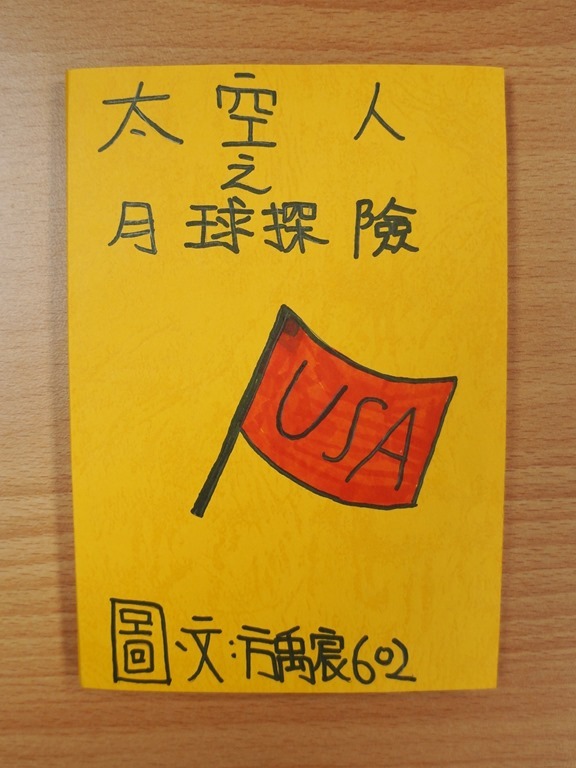 太空人
之
月球探險
USA
圖·文:方禹宸602